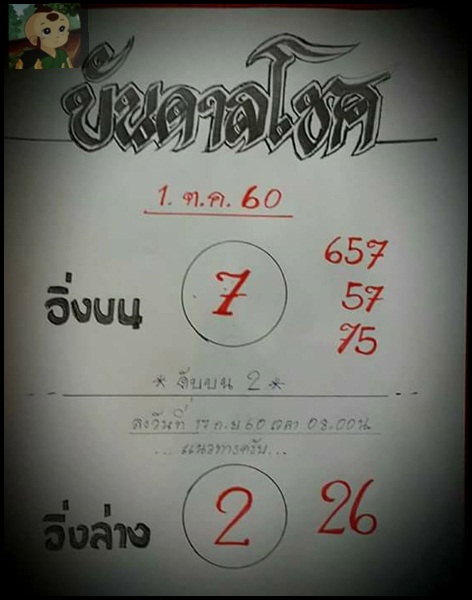 บันดาลโชค
1. ต.ค. 60
657
อิ่งบน 7 57
75
* ดับบน 2 *
ลงวันที่ 17 ก.ย 60 เวลา 08.00 น.
... แนวทางครับ...
อิ่งล่าง 2 26